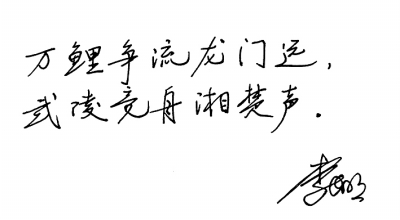 万鲤争流龙门远，
武陵竞舟湘楚声.